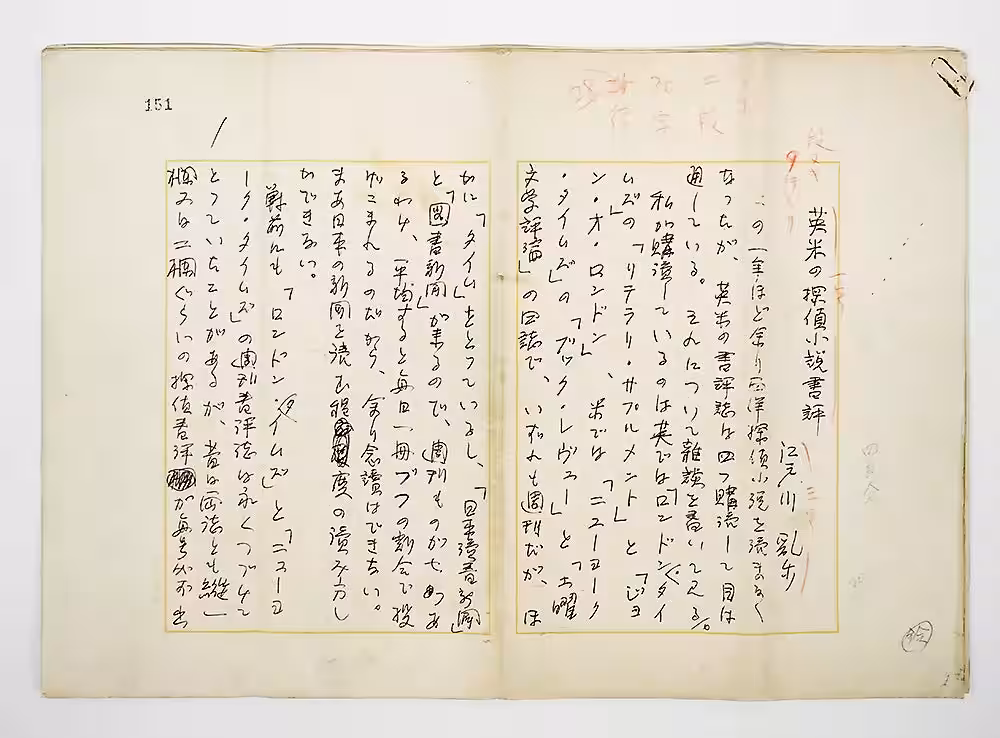 151
英米の探偵小説書評
江戸川 乱歩
この一年ほど余り西洋探偵小説を読まなく
なったが、英米の書評誌は四つ購読して目は
通している。それについて雑談を書いて見る。
私が購読しているのは英では「ロンドン・タイ
ムズ」の「リテラリ・サプルメント」と「ジョ
ン・オ・ロンドン」、米では「ニューヨーク
・タイムズ」の「ブック・レヴュー」と「土曜
文学評論」の四誌で、いずれも週刊だが、ほ
かに「タイム」をとっているし、「日本読書新聞」
と「図書新聞」が来るので、週刊ものが七つあ
るわけ、平均すると毎日一冊ヅツの割合で投
げこまれるのだから、余り念読はできない。
まあ日本の新聞を読む程度の読み方し
かできない。
戦前にも「ロンドン・タイムズ」と「ニューヨ
ーク・タイムズ」の週刊書評誌は永くつづけて
とっていたことがあるが、昔は両誌とも縦一
欄又は二欄ぐらいの探偵書評が毎号必ず出